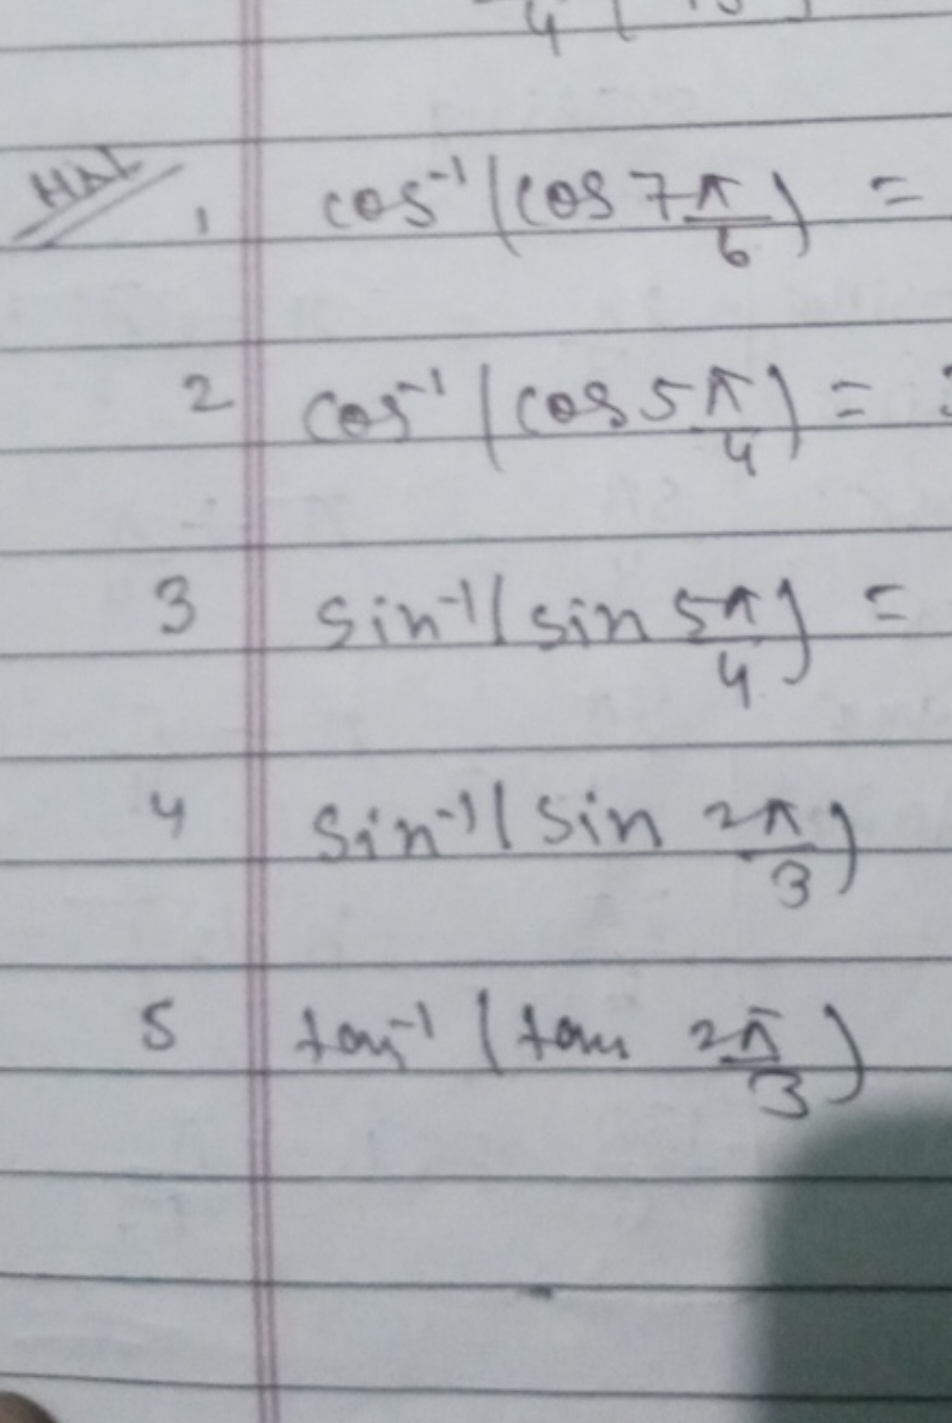 H.W
1 cos⁻¹(cos 7π/6) =
2 cos⁻¹(cos 5π/4) =
3 sin⁻¹(sin 5π/4) =
4 sin⁻¹(sin 2π/3)
5 tan⁻¹(tan 2π/3)